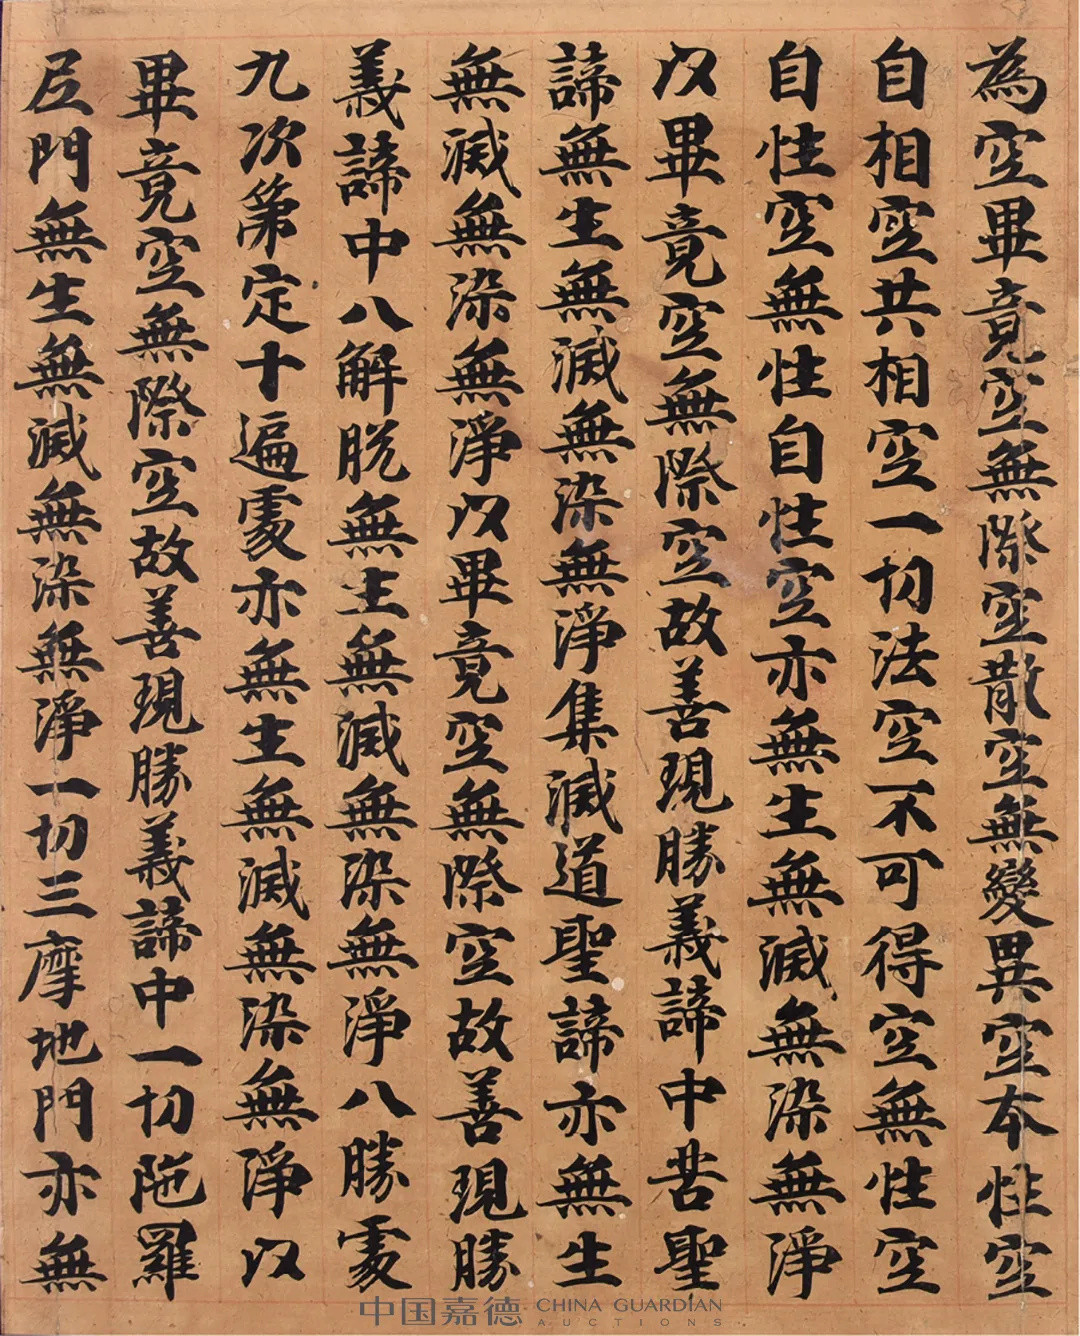 為空畢竟空無際空散空無變異空本性空
自相空共相空一切法空不可得空無性空
自性空無性自性空亦無生無滅無染無淨
以畢竟空無際空故善現勝義諦中苦聖
諦無生無滅無染無淨集滅道聖諦亦無生
無滅無染無淨以畢竟空無際空故善現勝
義諦中八解脫無生無滅無染無淨八勝處
九次第定十遍處亦無生無滅無染無淨以
畢竟空無際空故善現勝義諦中一切陁羅
尼門無生無滅無染無淨一切三摩地門亦無
中国嘉德 CHINA GUARDIAN
AUCTIONS